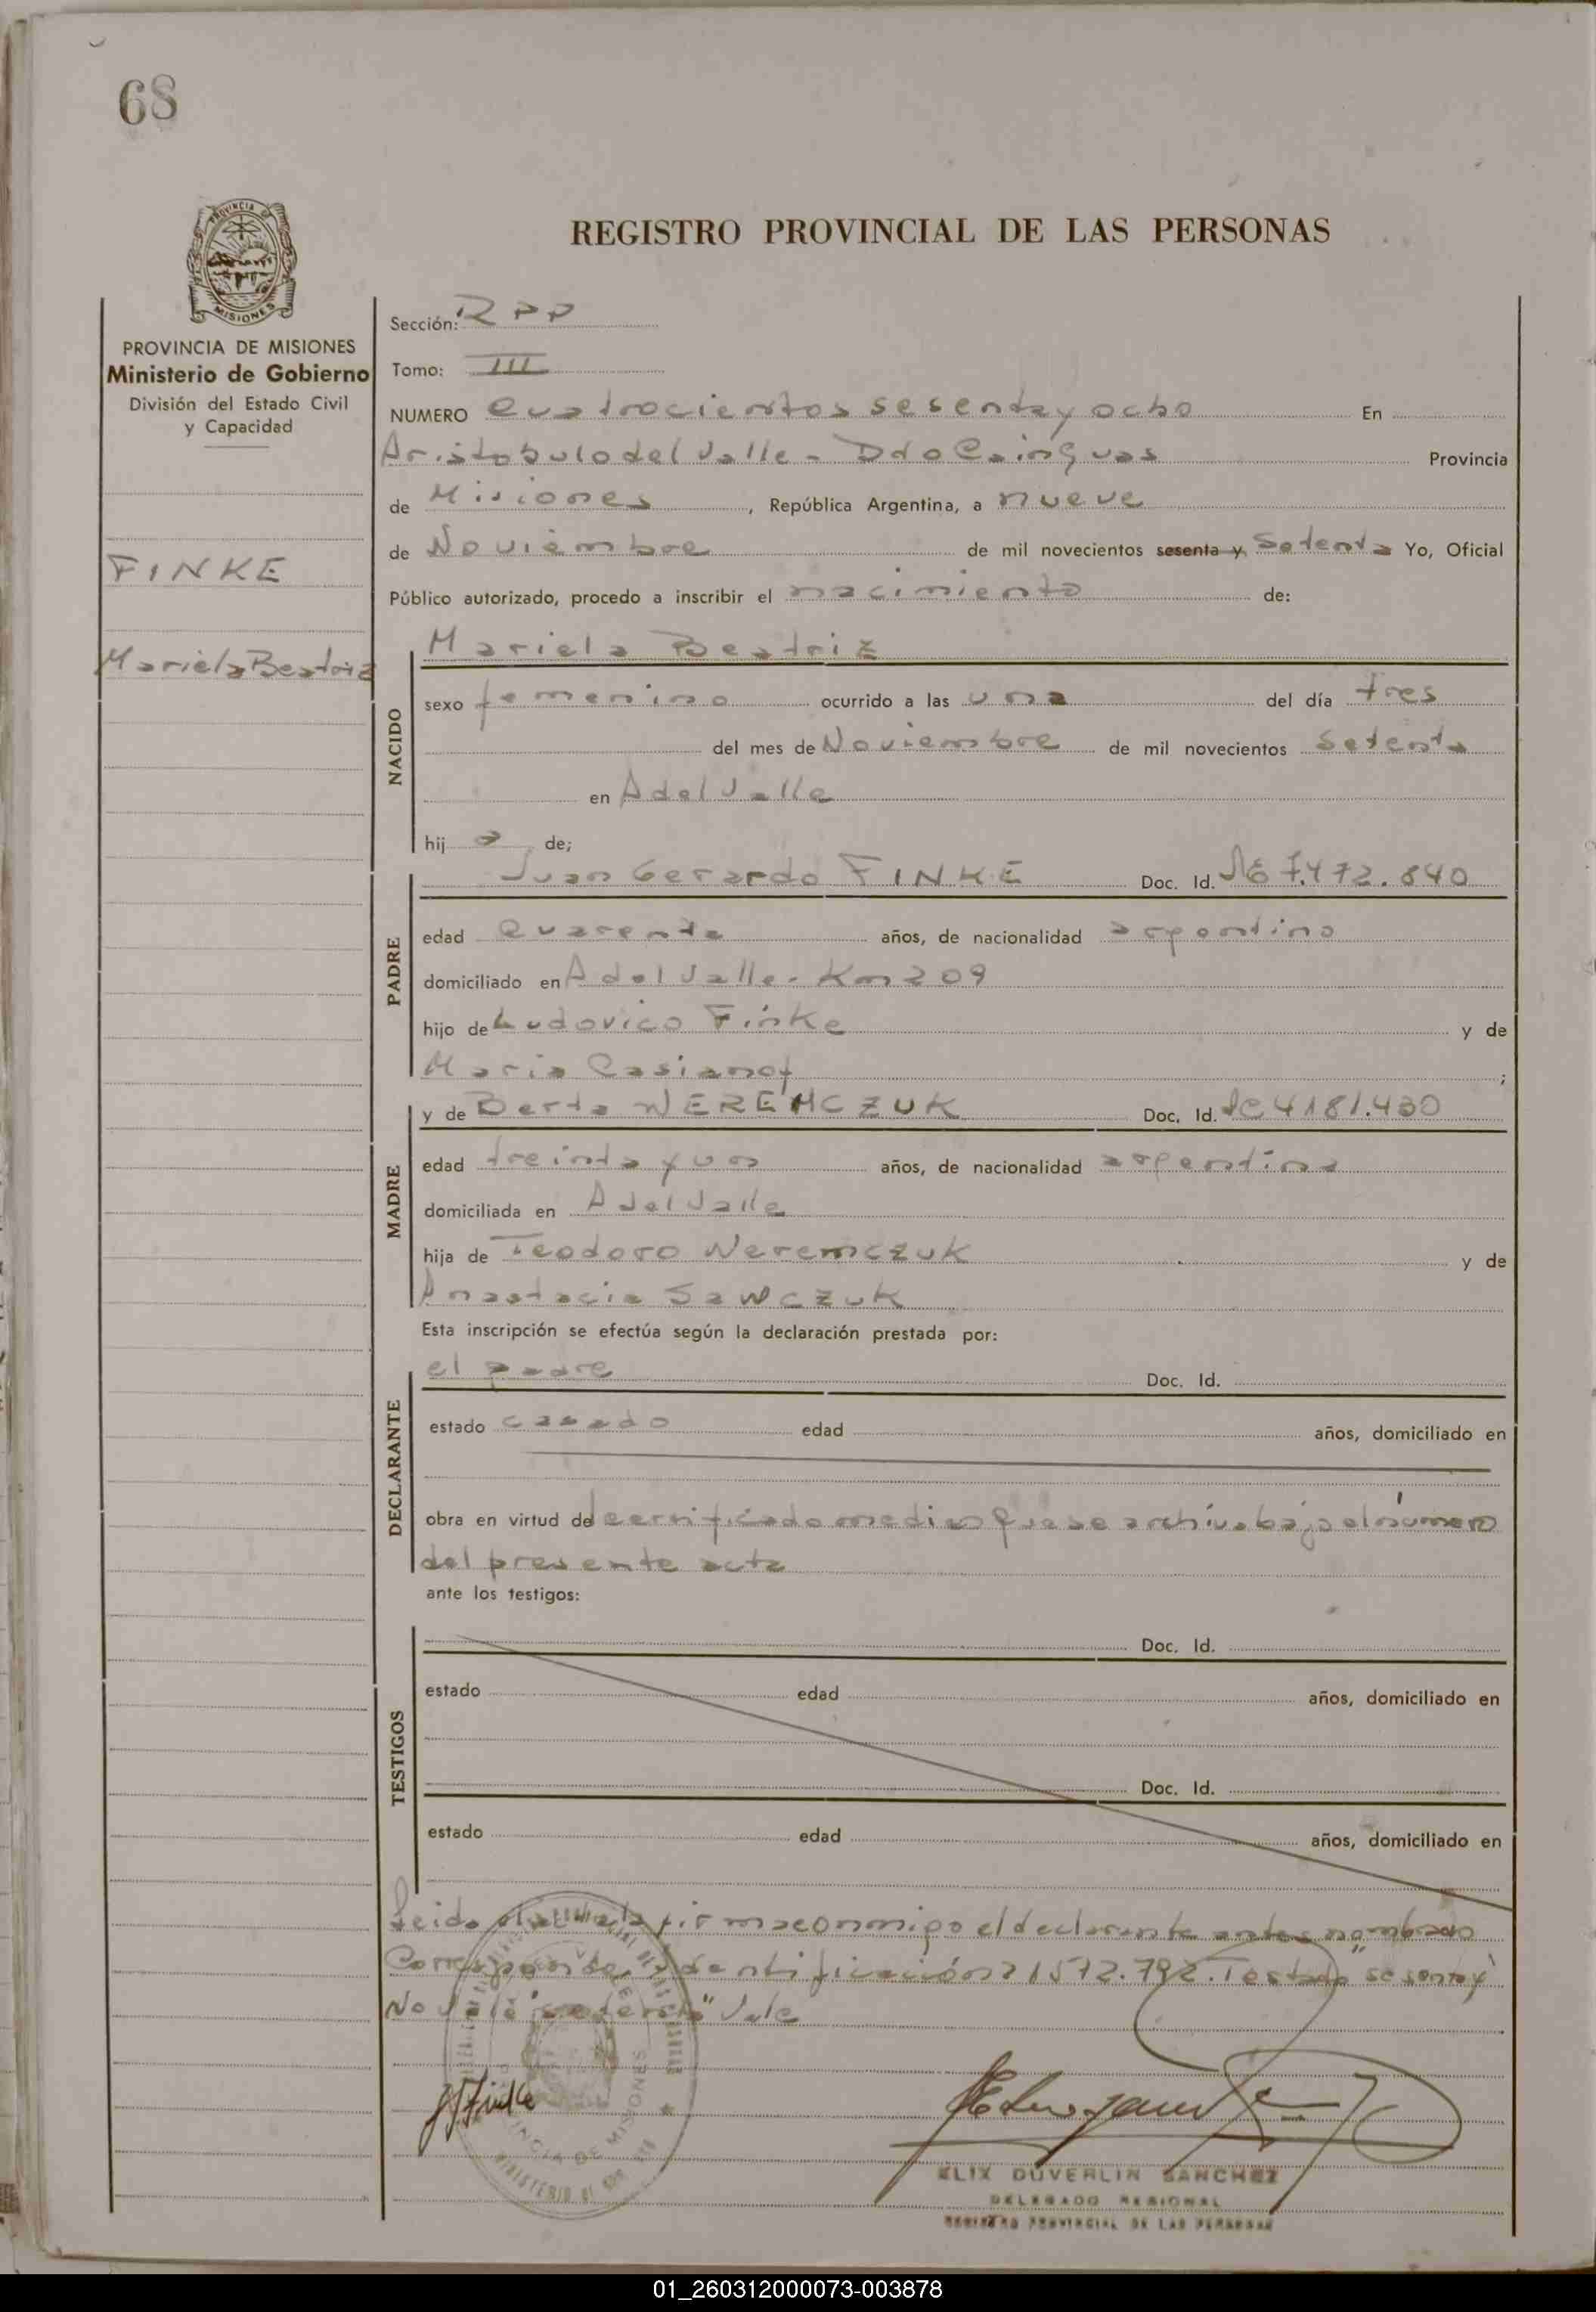 68
REGISTRO PROVINCIAL DE LAS PERSONAS
PROVINCIA
MISIONES
PROVINCIA DE MISIONES
Ministerio de Gobierno
División del Estado Civil
y Capacidad
FINKE
Mariela Beatriz
Sección: RPP
Tomo: III
NUMERO cuatrocientos sesenta y ocho En
Aristobulo del Valle - Dto Cainguas Provincia
de Misiones, República Argentina, a nueve
de Noviembre de mil novecientos sesenta y Setenta Yo, Oficial
Público autorizado, procedo a inscribir el nacimiento de:
Mariela Beatriz
NACIDO
sexo femenino ocurrido a las una del día tres
del mes de Noviembre de mil novecientos Setenta
en A del Valle
hij a de;
Juan Gerardo FINKE Doc. Id. 7.472.840
PADRE
edad cuarenta años, de nacionalidad argentino
domiciliado en A del Valle - Km 209
hijo de Ludovico Finke y de
Maria Casianof ;
y de Berta WEREMCZUK Doc. Id. 4181.430
MADRE
edad treinta y un años, de nacionalidad argentina
domiciliada en A del Valle
hija de Teodoro Weremczuk y de
Anastacia Sawczuk
Esta inscripción se efectúa según la declaración prestada por:
el padre Doc. Id.
DECLARANTE
estado casado edad años, domiciliado en
obra en virtud de certificado medico que se archiva bajo el número
del presente acta
ante los testigos:
Doc. Id.
TESTIGOS
estado edad años, domiciliado en
Doc. Id.
estado edad años, domiciliado en
Leida el acta la firma conmigo el declarante antes nombrado
Corresponde identificación 21572.792. Testado "sesenta y"
No Vale "setenta" Vale
PROVINCIA DE MISIONES
JGFinke
ELIX DUVERLIN SANCHEZ
DELEGADO REGIONAL
REGISTRO PROVINCIAL DE LAS PERSONAS
01_260312000073-003878